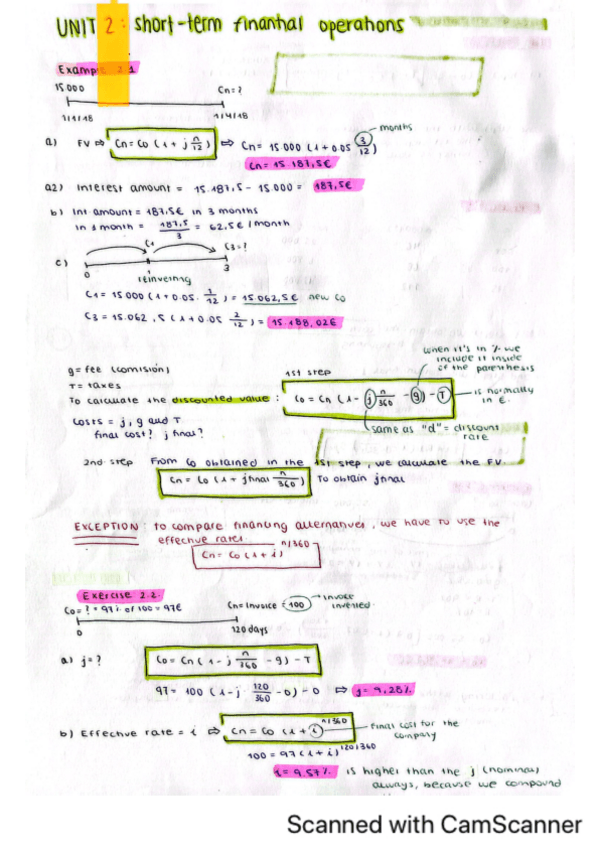 UNIT 2: short-term finantial operations
Example 2.1
15.000
Cn=?
1/1/18
1/4/18
a) FV ⇒ Cn = Co (1 + j n/12) ⇒ Cn = 15.000 (1 + 0.05 3/12)
months
Cn = 15.187,5€
a2) Interest amount = 15.187,5 - 15.000 = 187,5€
b) Int amount = 187,5€ in 3 months
in 1 month = 187,5/3 = 62,5€ / month
c)
C1
C3=?
0
3
reinvesting
C1 = 15.000 (1 + 0.05 · 1/12) = 15.062,5€ new Co
C3 = 15.062,5 (1 + 0.05 2/12) = 15.188,02€
when it's in % we
include it inside
of the parenthesis
g = fee (comision)
T = taxes
1st step
To calculate the discounted value: Co = Cn (1 - j n/360 - g) - T
is normally
in €.
costs = j, g and T.
final cost? j final?
same as "d" = discount
rate
2nd step From Co obtained in the 1st step, we calculate the FV
Cn = Co (1 + jfinal n/360) To obtain jfinal
EXCEPTION: to compare financing alternatives, we have to use the
effective rates.
Cn = Co (1 + i)^n/360
Exercise 2.2.
Co = ? = 97% of 100 = 97€
Cn = Invoice = 100
invoice
invested.
0
120 days
a) j = ? Co = Cn (1 - j n/360 - g) - T
97 = 100 (1 - j · 120/360 - 0) - 0 ⇒ j = 9.28%
b) Effective rate = i ⇒ Cn = Co (1 + i)^n/360
final cost for the
company
100 = 97 (1 + i)^120/360
i = 9.57% is higher than the j (nominal)
always, because we compound
Scanned with CamScanner